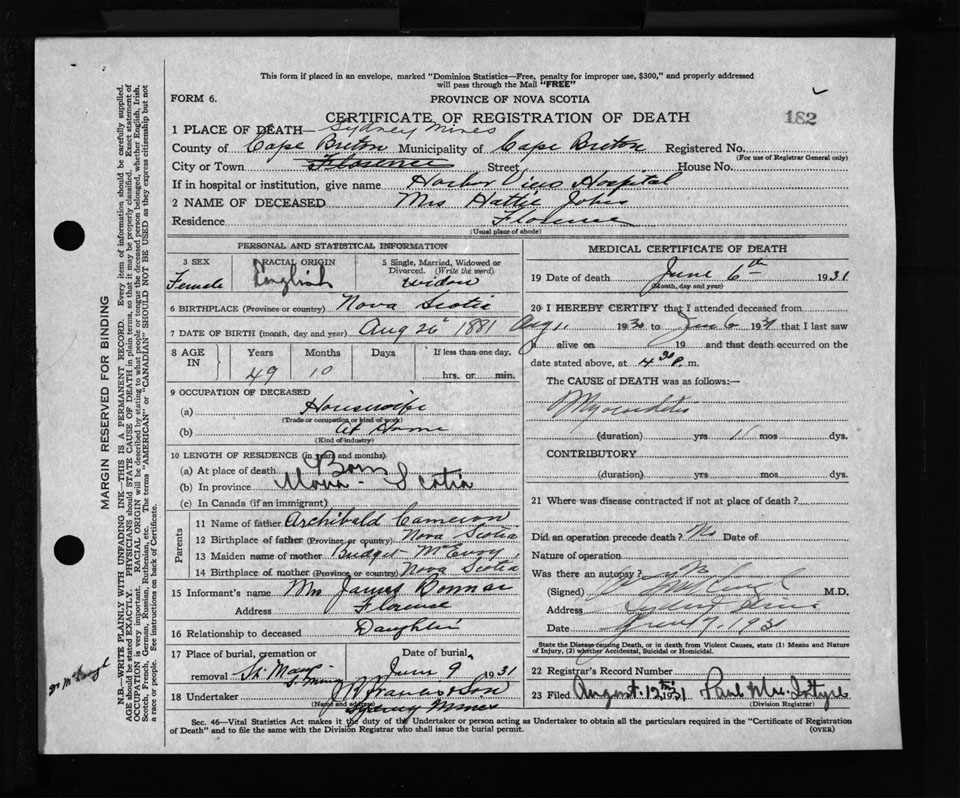 This form if placed in an envelope, marked "Dominion Statistics—Free, penalty for improper use, $300," and properly addressed
will pass through the Mail "FREE"
FORM 6.
PROVINCE OF NOVA SCOTIA
CERTIFICATE OF REGISTRATION OF DEATH
182
1 PLACE OF DEATH— Sydney Mines
County of Cape Breton Municipality of Cape Breton Registered No.
(For use of Registrar General only)
City or Town Florence Street House No.
If in hospital or institution, give name Harbor View Hospital
2 NAME OF DECEASED Mrs Hattie
Residence Florence
(Usual place of abode)
PERSONAL AND STATISTICAL INFORMATION
3 SEX Female
RACIAL ORIGIN English
5 Single, Married, Widowed or Divorced. (Write the word) widow
6 BIRTHPLACE (Province or country) Nova Scotia
7 DATE OF BIRTH (month, day and year) Aug 26 1881
8 AGE IN Years Months Days If less than one day.
49 10 hrs. or min.
9 OCCUPATION OF DECEASED
(a) Housewife
(Trade or occupation or kind of work)
(b) At Home
(Kind of industry)
10 LENGTH OF RESIDENCE (in years and months)
(a) At place of death Born
(b) In province Nova Scotia
(c) In Canada (if an immigrant)
Parents
11 Name of father Archibald Cameron
12 Birthplace of father (Province or country) Nova Scotia
13 Maiden name of mother Bridget McEvoy
14 Birthplace of mother (Province or country) Nova Scotia
15 Informant's name Mrs James Bonnar
Address Florence
16 Relationship to deceased Daughter
17 Place of burial, cremation or removal St. Marys S. Mines
Date of burial June 9 1931
18 Undertaker
(Name and address)
Sydney Mines
MEDICAL CERTIFICATE OF DEATH
19 Date of death June 6th 1931
(Month, day and year)
20 I HEREBY CERTIFY that I attended deceased from
Aug 1, 1930 to June 6 1931 that I last saw
h alive on 19 and that death occurred on the
date stated above, at 4 30 p. m.
The CAUSE of DEATH was as follows:—
Myocarditis
(duration) yrs 11 mos dys.
CONTRIBUTORY
(duration) yrs mos dys.
21 Where was disease contracted if not at place of death?
Did an operation precede death? No Date of
Nature of operation
Was there an autopsy?
(Signed) M.D.
Address Sydney Mines
Date June 7, 1931
State the Disease causing Death, or in death from Violent Causes, state (1) Means and Nature of
Injury, (2) whether Accidental, Suicidal or Homicidal.
22 Registrar's Record Number
23 Filed August 12th 1931
(Division Registrar)
Sec. 46—Vital Statistics Act makes it the duty of the Undertaker or person acting as Undertaker to obtain all the particulars required in the "Certificate of Registration
of Death" and to file the same with the Division Registrar who shall issue the burial permit.
(OVER)
MARGIN RESERVED FOR BINDING
N.B.—WRITE PLAINLY WITH UNFADING INK—THIS IS A PERMANENT RECORD. Every item of information should be carefully supplied.
AGE should be stated EXACTLY. PHYSICIANS should STATE CAUSE OF DEATH in plain terms, so that it may be properly classified. Exact statement of
OCCUPATION is very important. RACIAL ORIGIN will be described by stating to what people or tongue the deceased person belonged, whether English, Irish,
Scotch, French, German, Russian, Ruthenian, etc. The terms "AMERICAN" or "CANADIAN" SHOULD NOT BE USED as they express citizenship but not
a race or people. See instructions on back of Certificate.